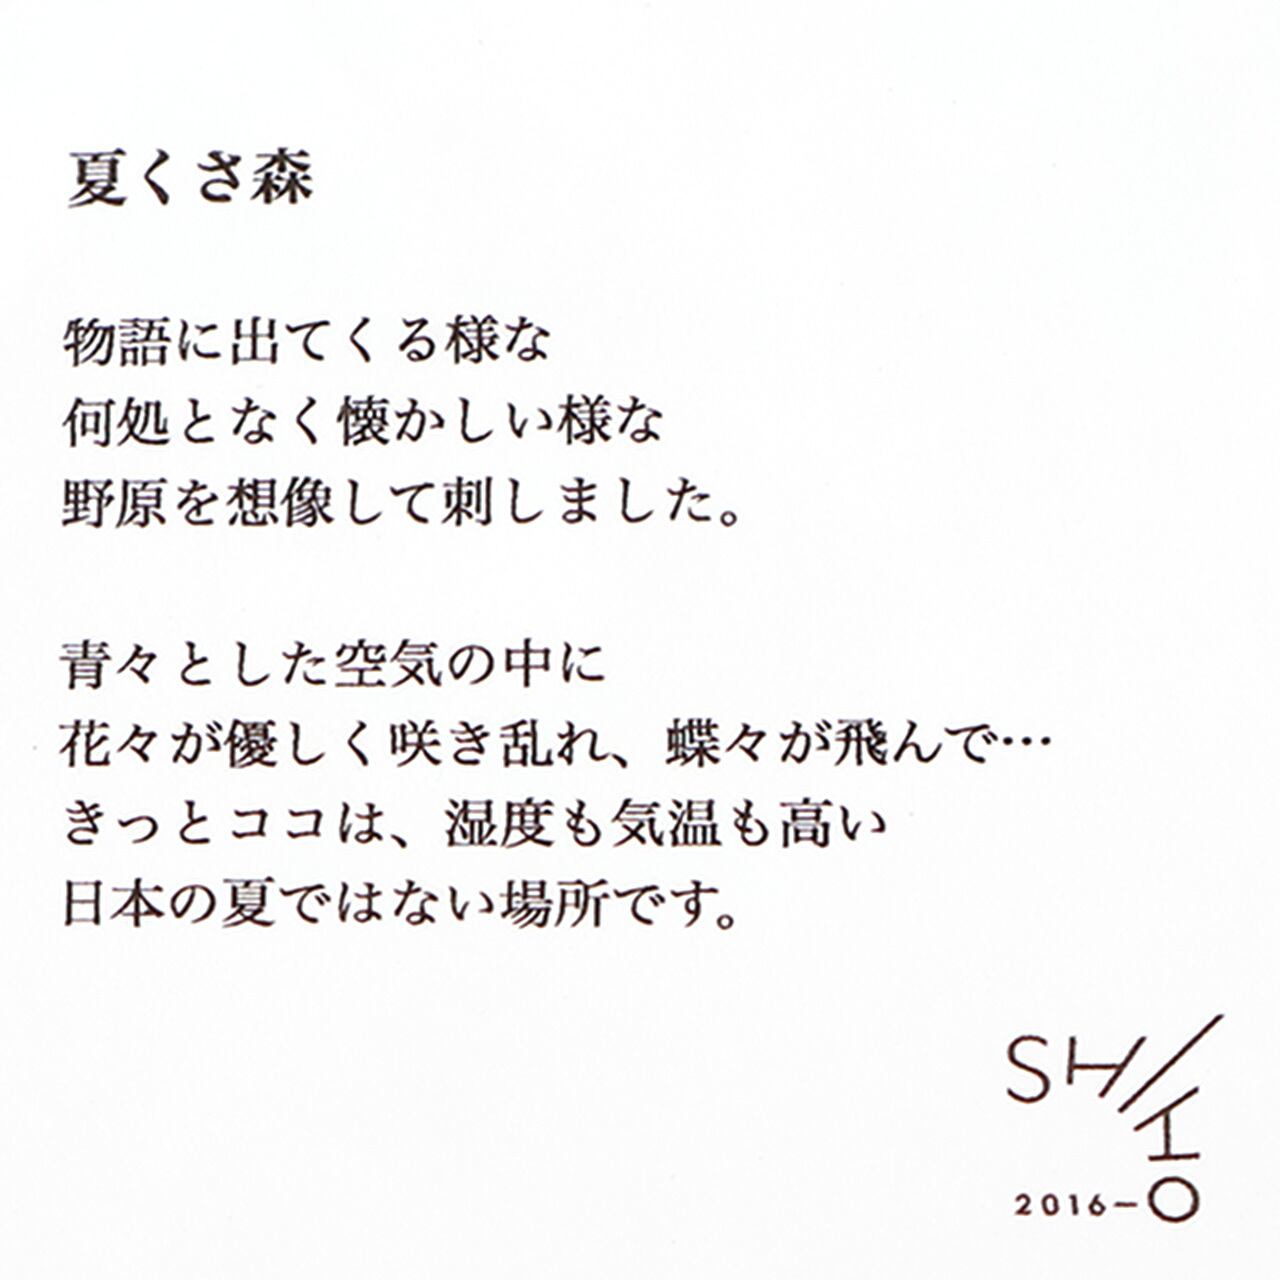 夏くさ森
物語に出てくる様な
何処となく懐かしい様な
野原を想像して刺しました。
青々とした空気の中に
花々が優しく咲き乱れ、蝶々が飛んで…
きっとココは、湿度も気温も高い
日本の夏ではない場所です。
SHIZO
2016–